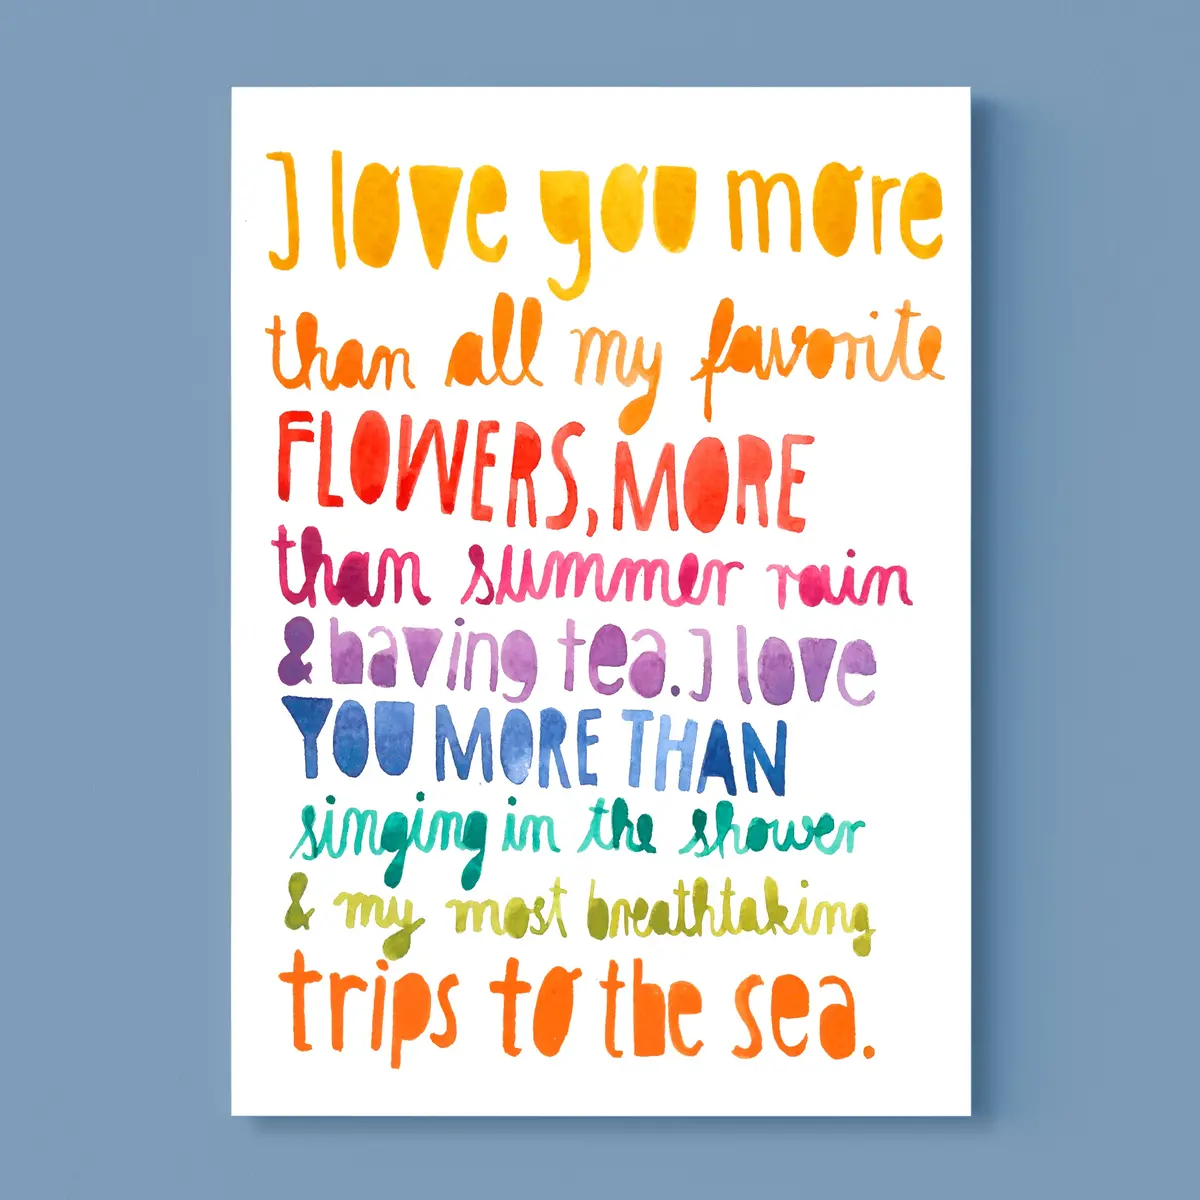 I love you more
than all my favorite
FLOWERS, MORE
than summer rain
& having tea. I love
YOU MORE THAN
singing in the shower
& my most breathtaking
trips to the sea.